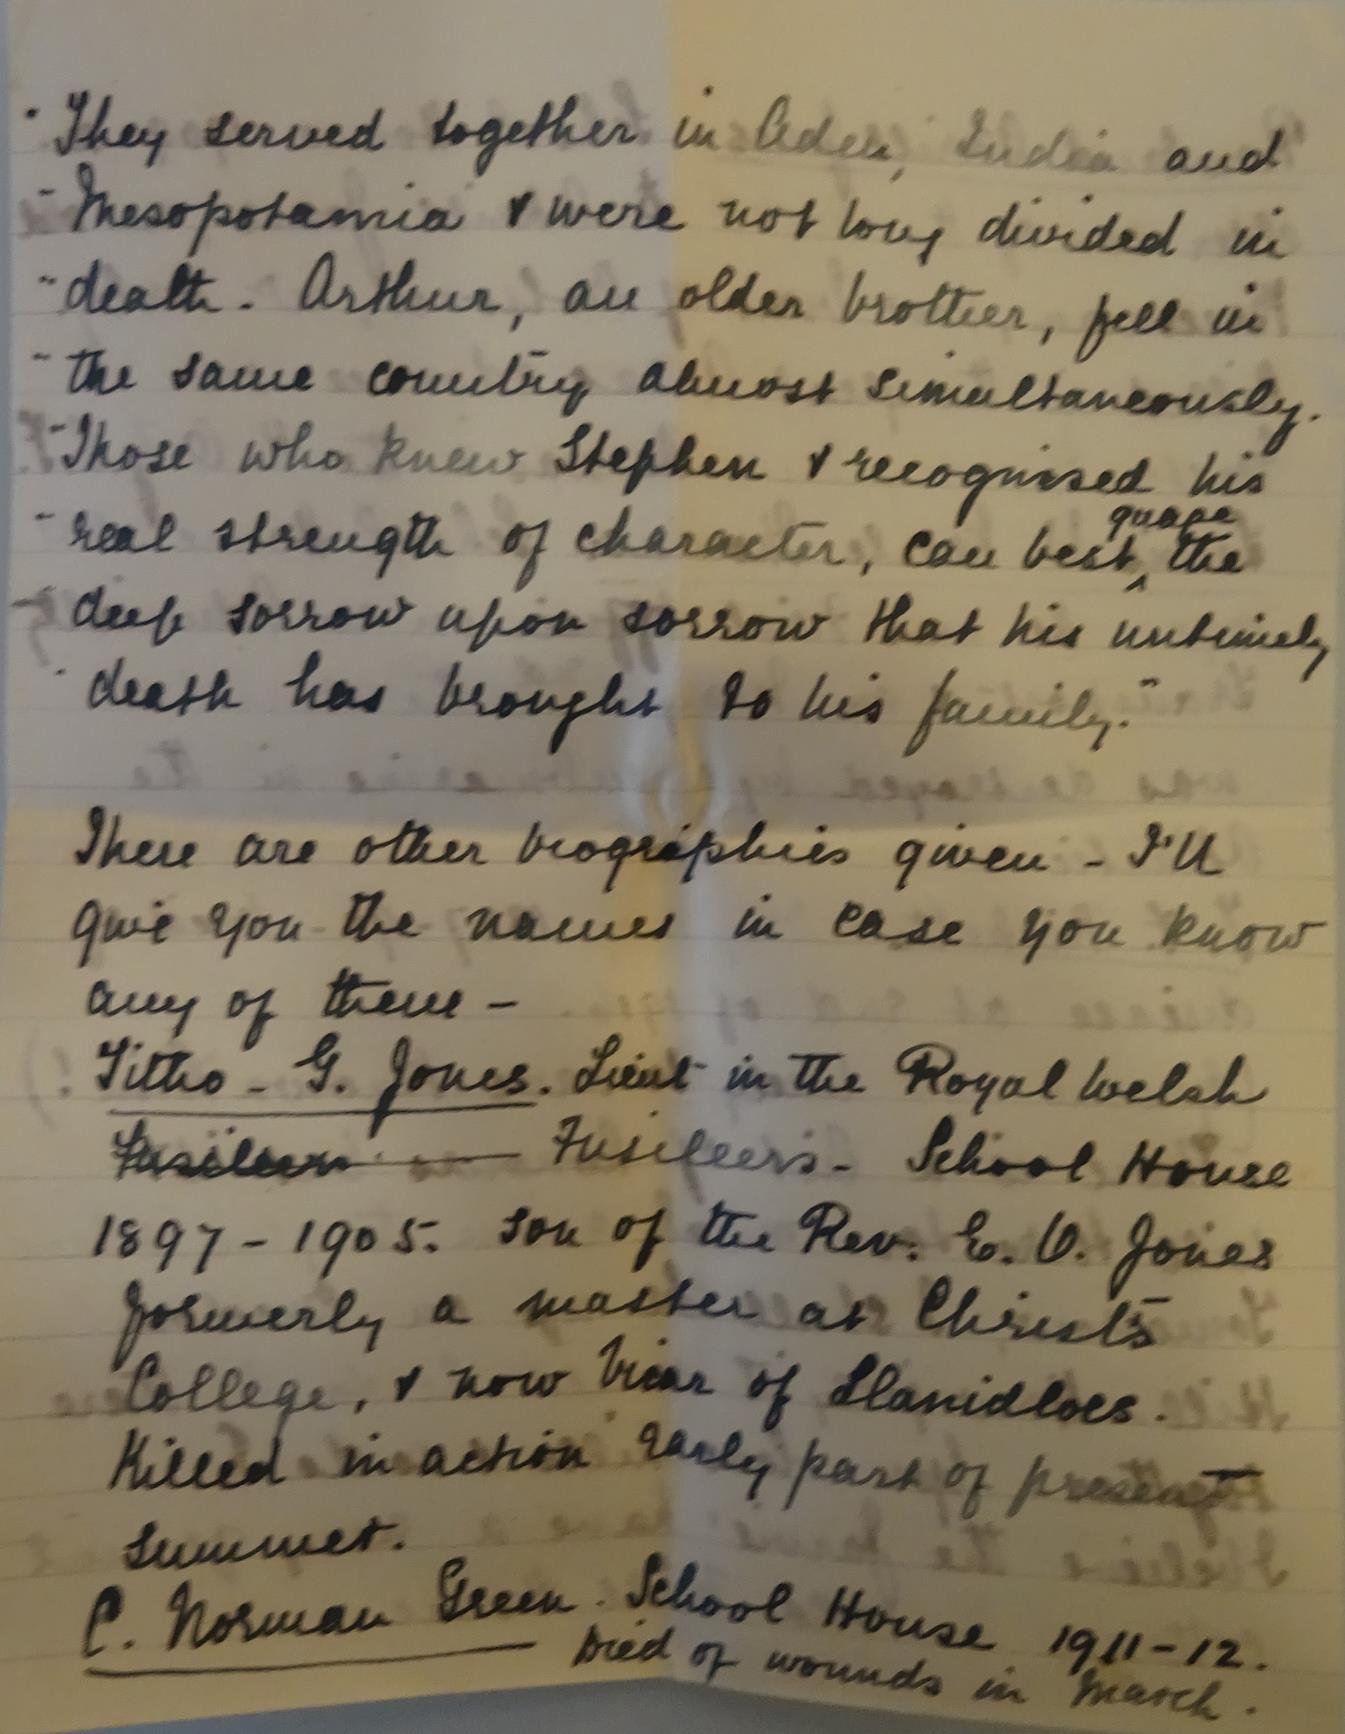 "They served together in Aden, India and
"Mesopotamia & were not long divided in
"death. Arthur, an older brother, fell in
"the same country almost simultaneously.
"Those who knew Stephen & recognised his
"real strength of character, can best guage the
"deep sorrow upon sorrow that his untimely
"death has brought to his family."
There are other biographies given - I'll
give you the names in case you know
any of them -
Titho - G. Jones. Lieut in the Royal Welsh
Fusileers Fusileers. School House
1897-1905. Son of the Rev. E. O. Jones
formerly a master at Christ's
College, & now Vicar of Llanidloes.
Killed in action early part of present
summer.
C. Norman Green. School House 1911-12.
Died of wounds in March.